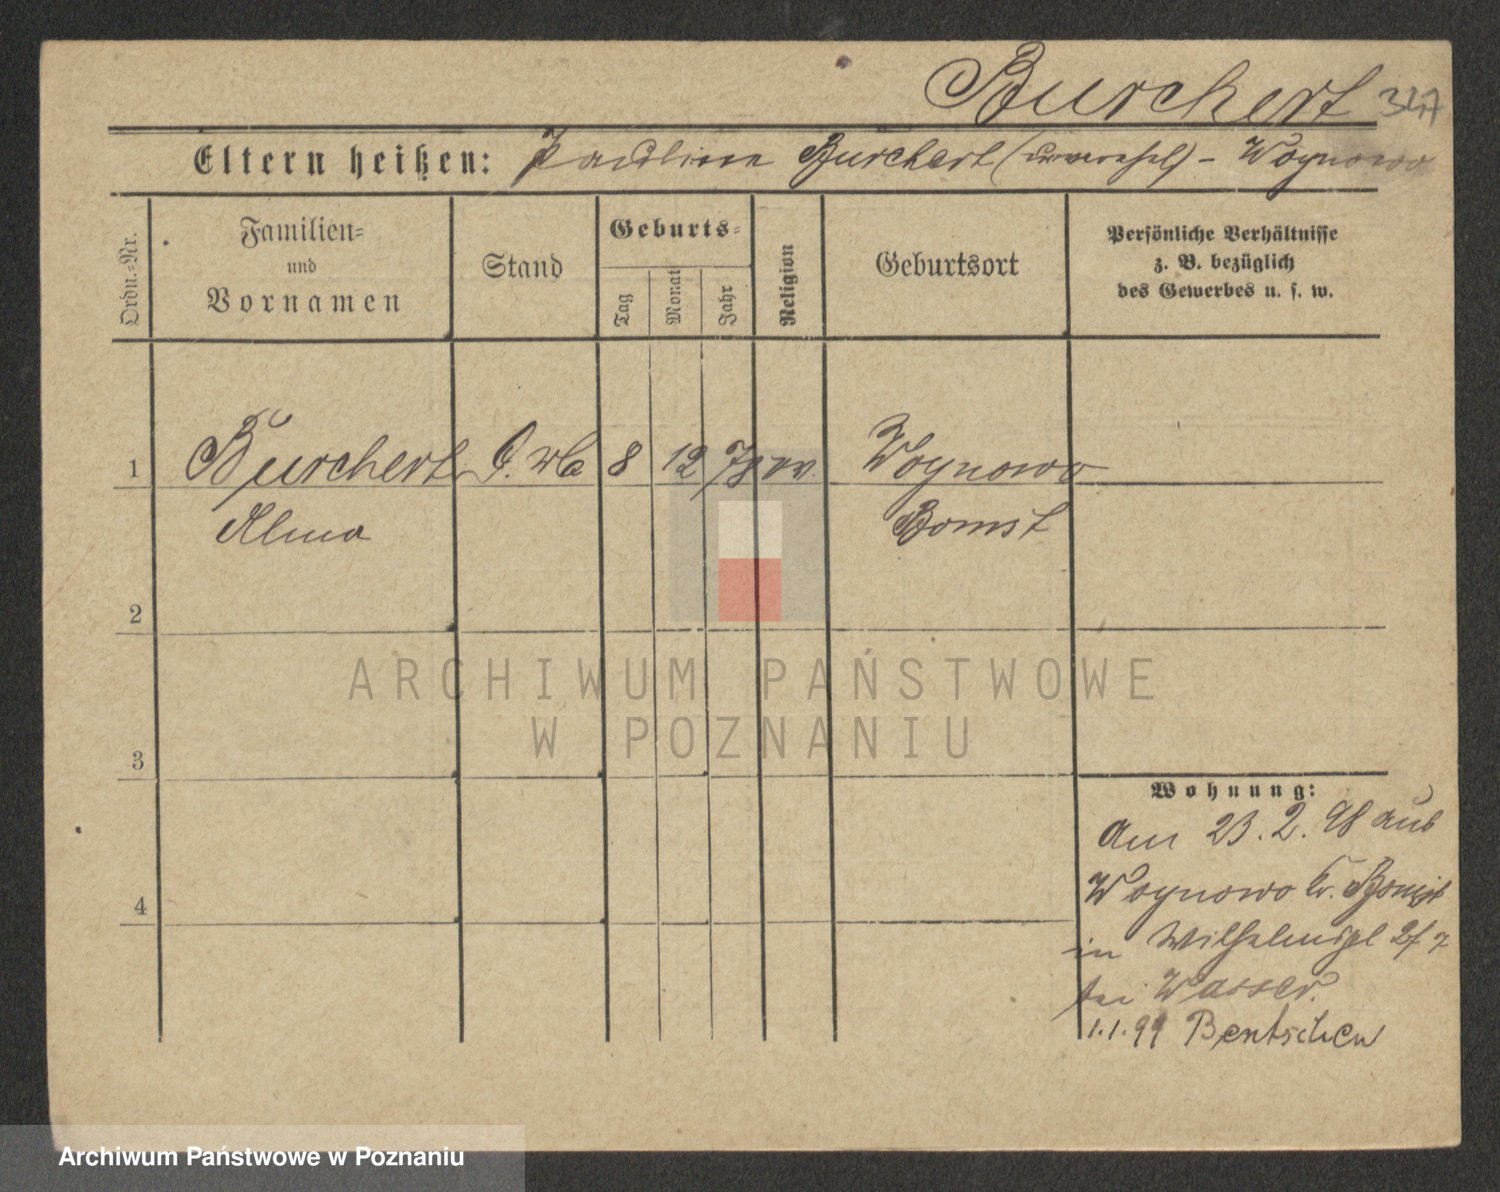 Burchert 347
Eltern heißen: Pauline Burchert (unverehel) - Wognowo
Ordn.-Nr.
Familien-
und
Vornamen
Stand
Geburts-
Tag
Monat
Jahr
Religion
Geburtsort
Persönliche Verhältnisse
z. B. bezüglich
des Gewerbes u. s. w.
1 Burchert 8 12 78 ev. Wognowo
Alma Bomst
2
ARCHIWUM PAŃSTWOWE
W POZNANIU
3
Wohnung:
Am 23.2.98 aus
Wognowo Kr. Bomst
in Wilhelmspl
bei Wasser.
4
1.1.99 Bentschen
Archiwum Państwowe w Poznaniu